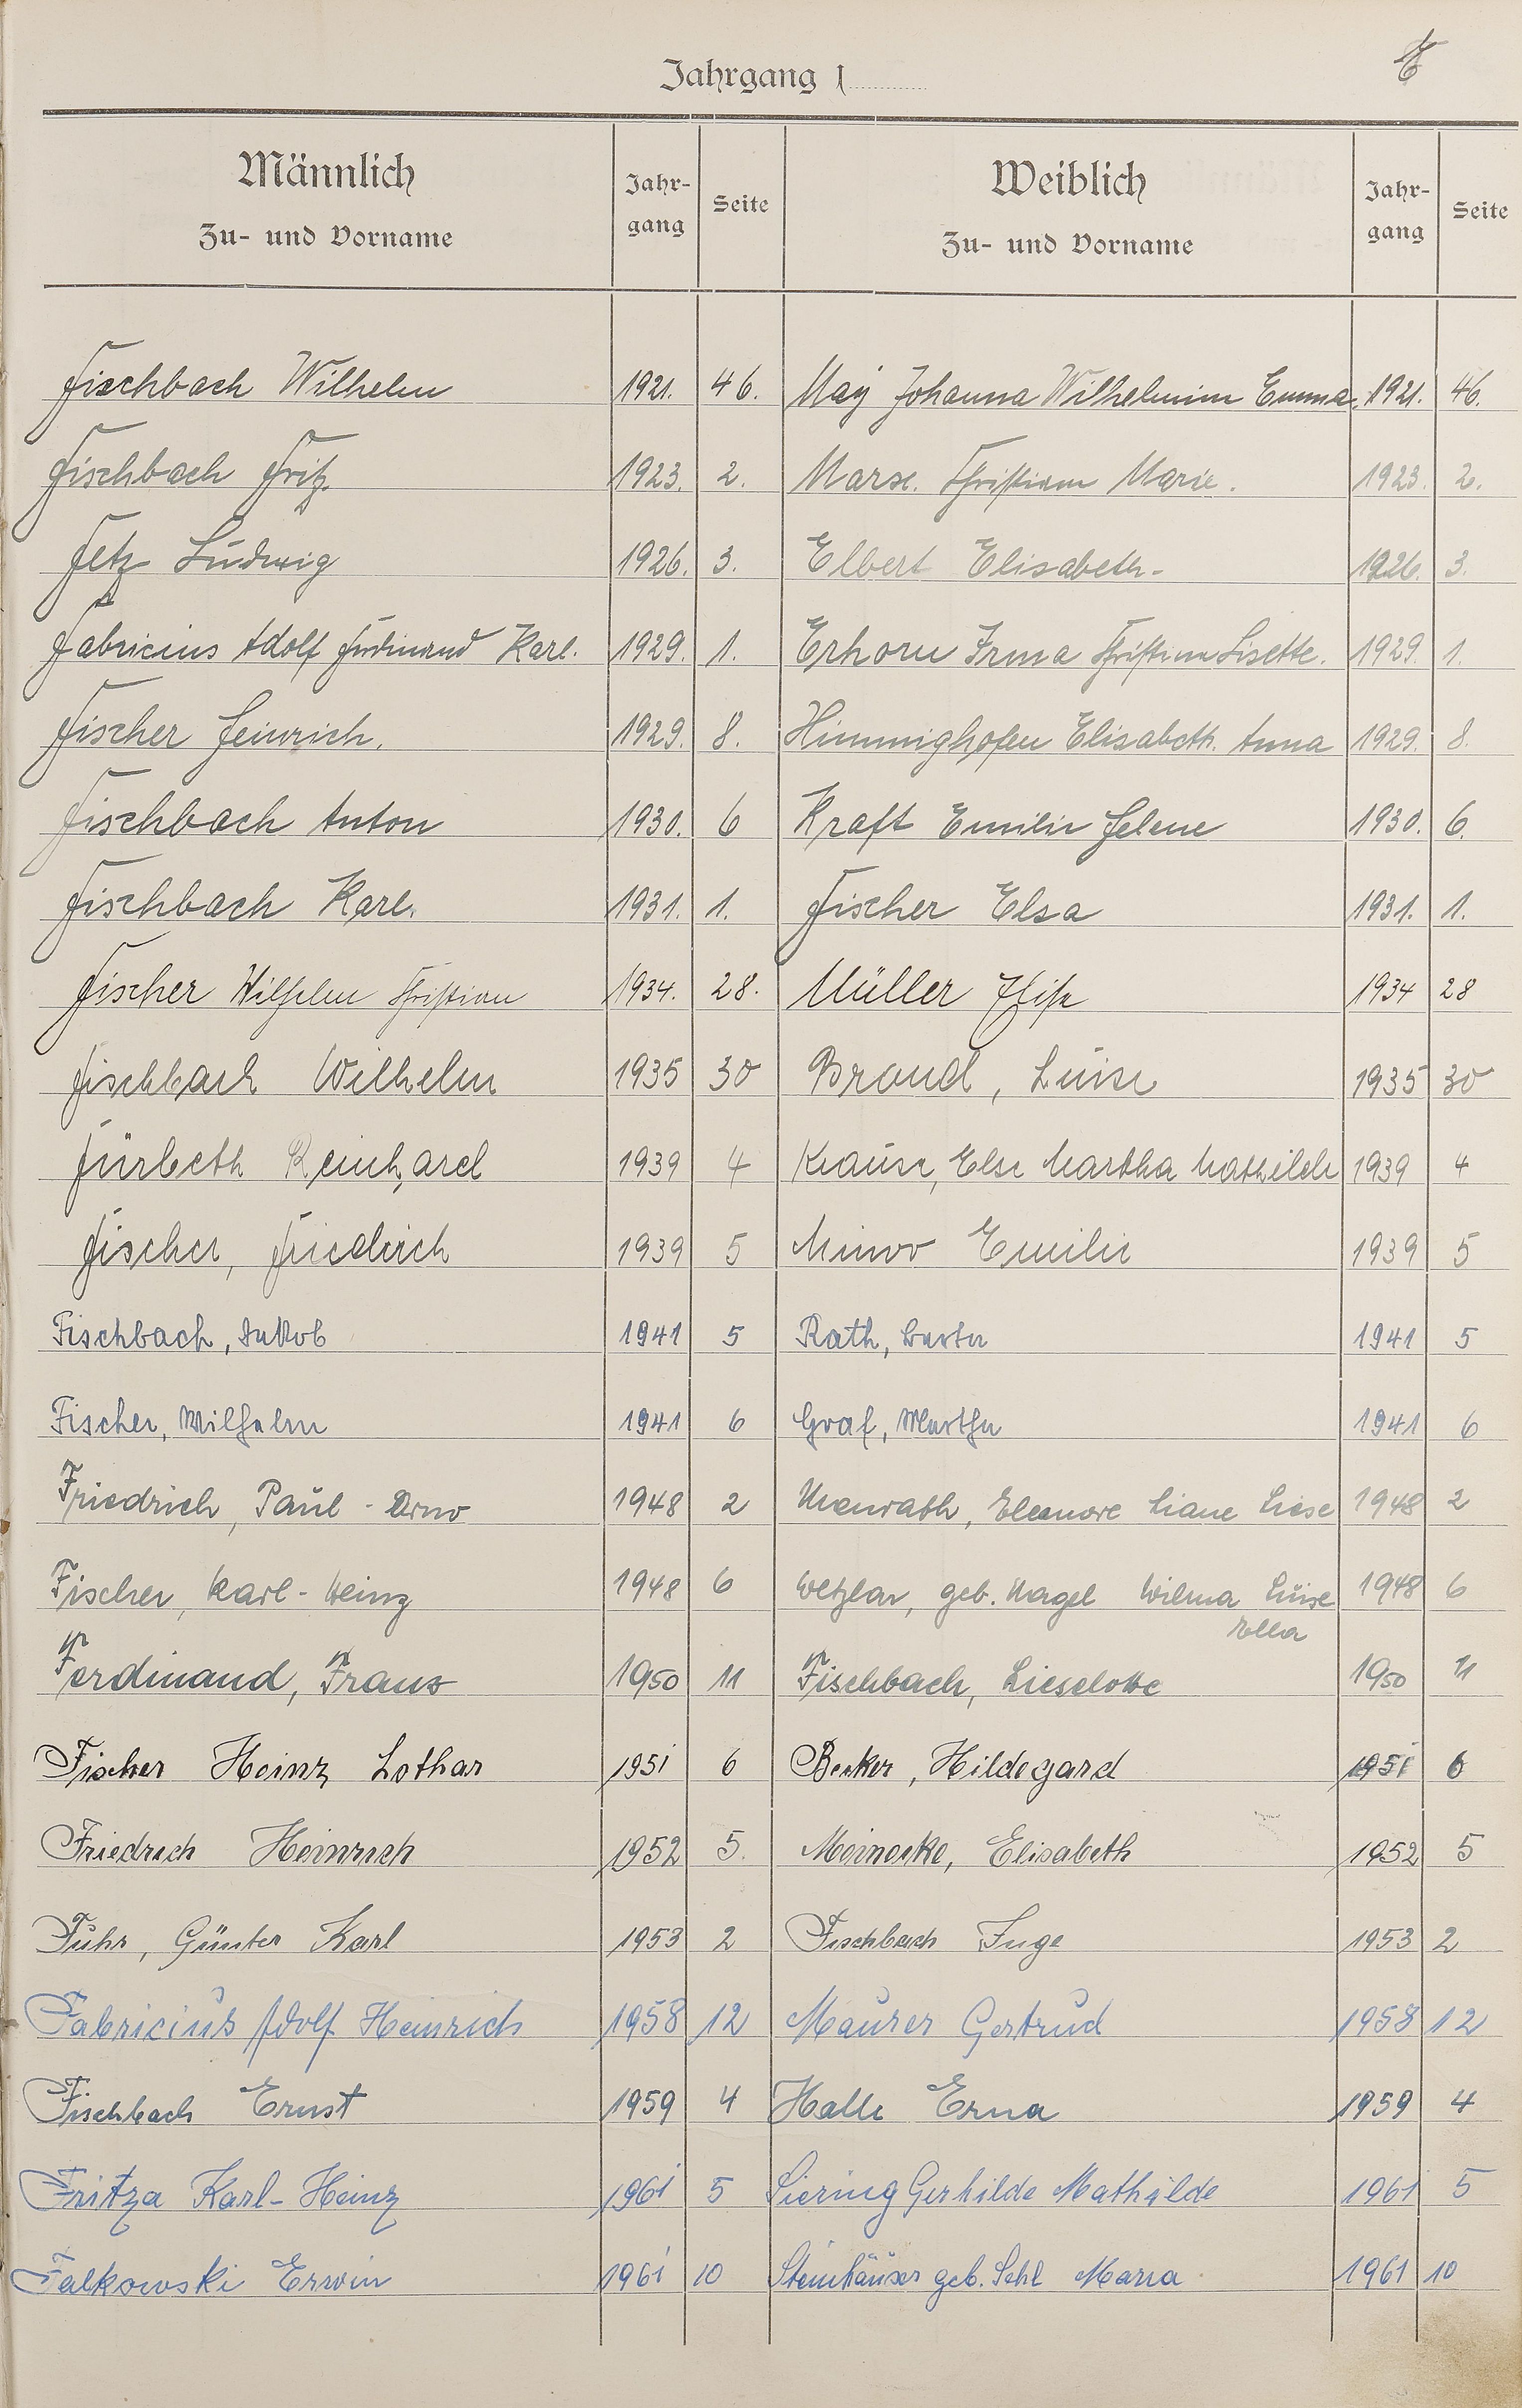 Jahrgang 1
Männlich
Zu- und Vorname
Jahr-
gang
Seite
Weiblich
Zu- und Vorname
Jahr-
gang
Seite
Fischbach Wilhelm 1921. 46. May Johanna Wilhelmine Emma. 1921. 46.
Fischbach Fritz 1923. 2. Marx. Christiane Marie. 1923. 2.
Fetz Ludwig 1926. 3. Elbert Elisabeth. 1926. 3.
Fabricius Adolf Ferdinand Karl. 1929. 1. Erhorn Irma Christine Lisette. 1929. 1.
Fischer Heinrich. 1929. 8. Himmighofen Elisabeth. Anna 1929. 8.
Fischbach Anton 1930. 6 Kraft Emilie Helene 1930. 6.
Fischbach Karl. 1931. 1. Fischer Elsa 1931. 1.
Fischer Wilhelm Christian 1934. 28. Müller Elise 1934 28
Fischbach Wilhelm 1935 30 Braud, Luise 1935 30
Fürbeth Reinhard 1939 4 Krause, Else Martha Mathilde 1939 4
Fischer, Friedrich 1939 5 Minor Emilie 1939 5
Fischbach, Jakob 1941 5 Rath, Berta 1941 5
Fischer, Wilhelm 1941 6 Graf, Martha 1941 6
Friedrich, Paul - Arno 1948 2 Eleonore Liane Liese 1948 2
Fischer, Karl-Heinz 1948 6 Wetzlar, geb. Nagel Wilma Luise 1948 6
Ella
Ferdinand, Franz 1950 11 Fischbach, Lieselotte 1950 11
Fischer Heinz Lothar 1951 6 Becker, Hildegard 1951 6
Friedrich Heinrich 1952 5. Meinecke, Elisabeth 1952 5
Fuhr, Günter Karl 1953 2 Fischbach Inge 1953 2
Fabricius Adolf Heinrich 1958 12 Maurer Gertrud 1958 12
Fischbach Ernst 1959 4 Halle Erna 1959 4
Fritza Karl-Heinz 1961 5 Siering Gerhilde Mathilde 1961 5
Falkowski Erwin 1961 10 Steinhäuser geb. Sehl Maria 1961 10